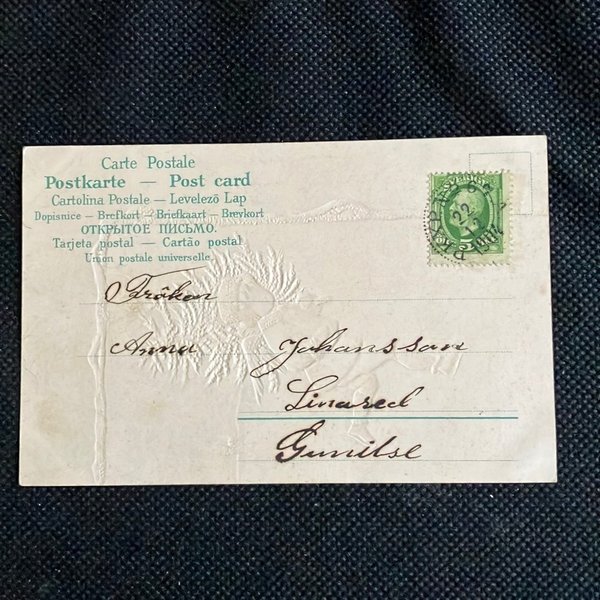 Carte Postale
Postkarte — Post card
Cartolina Postale — Levelező Lap
Dopisnice — Brefkort — Briefkaart — Brevkort
ОТКРЫТОЕ ПИСЬМО.
Tarjeta postal — Cartão postal
Union postale universelle
22
5
Fröken
Anna Johansson
Linared